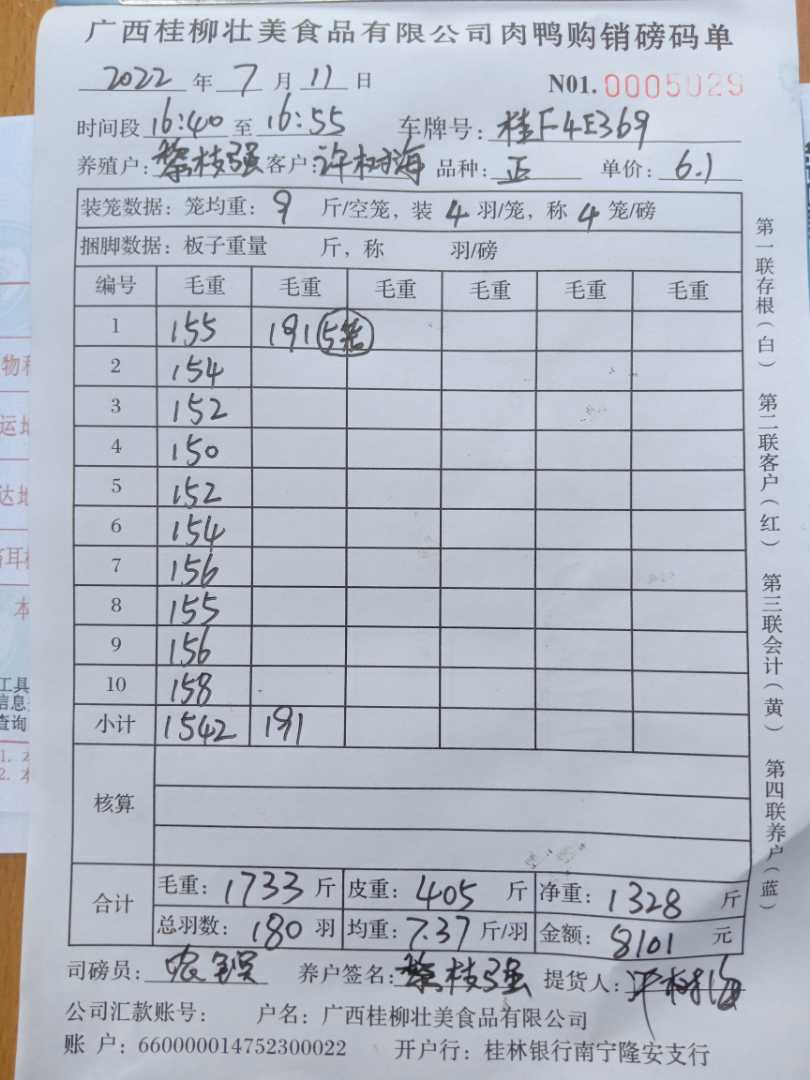 广西桂柳壮美食品有限公司肉鸭购销磅码单
2022 年 7 月 11 日 N01. 0005029
时间段 16:40 至 16:55 车牌号: 桂F4E369
养殖户: 黎枝强 客户: 许树海 品种: 正 单价: 6.1
装笼数据: 笼均重: 9 斤/空笼, 装 4 羽/笼, 称 4 笼/磅
捆脚数据: 板子重量 斤, 称 羽/磅
编号 毛重 毛重 毛重 毛重 毛重 毛重
1 155 191 5笼
2 154
3 152
4 150
5 152
6 154
7 156
8 155
9 156
10 158
小计 1542 191
核算
合计
毛重: 1733 斤 皮重: 405 斤 净重: 1328 斤
总羽数: 180 羽 均重: 7.37 斤/羽 金额: 8101 元
司磅员: 农 养户签名: 黎枝强 提货人: 许树海
公司汇款账号: 户名: 广西桂柳壮美食品有限公司
账 户: 660000014752300022 开户行: 桂林银行南宁隆安支行
第一联存根(白) 第二联客户(红) 第三联会计(黄) 第四联养户(蓝)
运地
达地
耳
本
工具
信息
查询
1. 本
2. 本